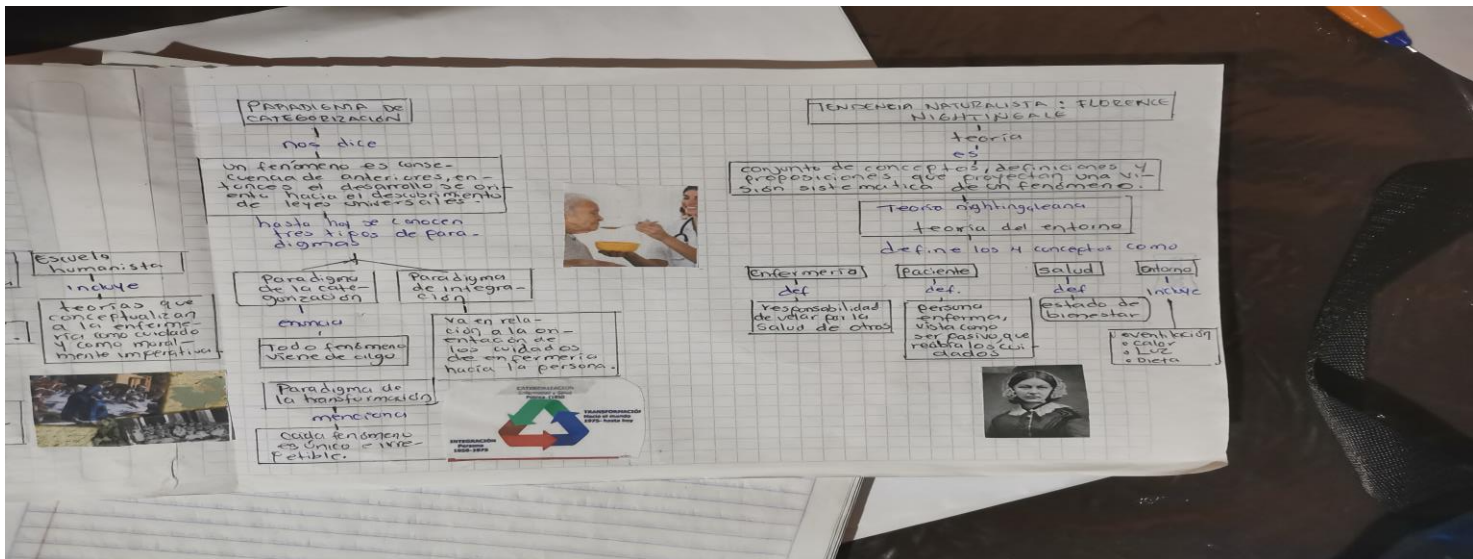 Escuela
humanista
incluye
teorías que
conceptualizan
a la enferme-
ría como cuidado
y como moral-
mente imperativa.
PARADIGMA DE
CATEGORIZACIÓN
nos dice
un fenómeno es conse-
cuencia de anteriores, en-
tonces el desarrollo se ori-
enta hacia el descubrimiento
de leyes universales.
hasta hoy se conocen
tres tipos de para-
digmas
Paradigma
de la cate-
gorización
enuncia
Todo fenómeno
viene de algo
Paradigma de
la transformación
menciona
cada fenómeno
es único e irre-
petible.
Paradigma
de integra-
ción
va en rela-
ción a la ori-
entación de
los cuidados
de enfermería
hacia la persona.
CATEGORIZACIÓN
TRANSFORMACIÓN
Hacia el mundo
1975- hasta hoy
INTEGRACIÓN
Persona
1950-1975
TENDENCIA NATURALISTA: FLORENCE
NIGHTINGALE
teoría
es
conjunto de conceptos, definiciones y
proposiciones que proyectan una vi-
sión sistemática de un fenómeno.
Teoría nightingaleana
teoría del entorno
define los 4 conceptos como
enfermería
def
responsabilidad
de velar por la
salud de otros
paciente
def.
persona
enferma,
vista como
ser pasivo que
recibía los cui-
dados
salud
def
estado de
bienestar
entorno
incluye
• ventilación
• calor
• Luz
• Dieta